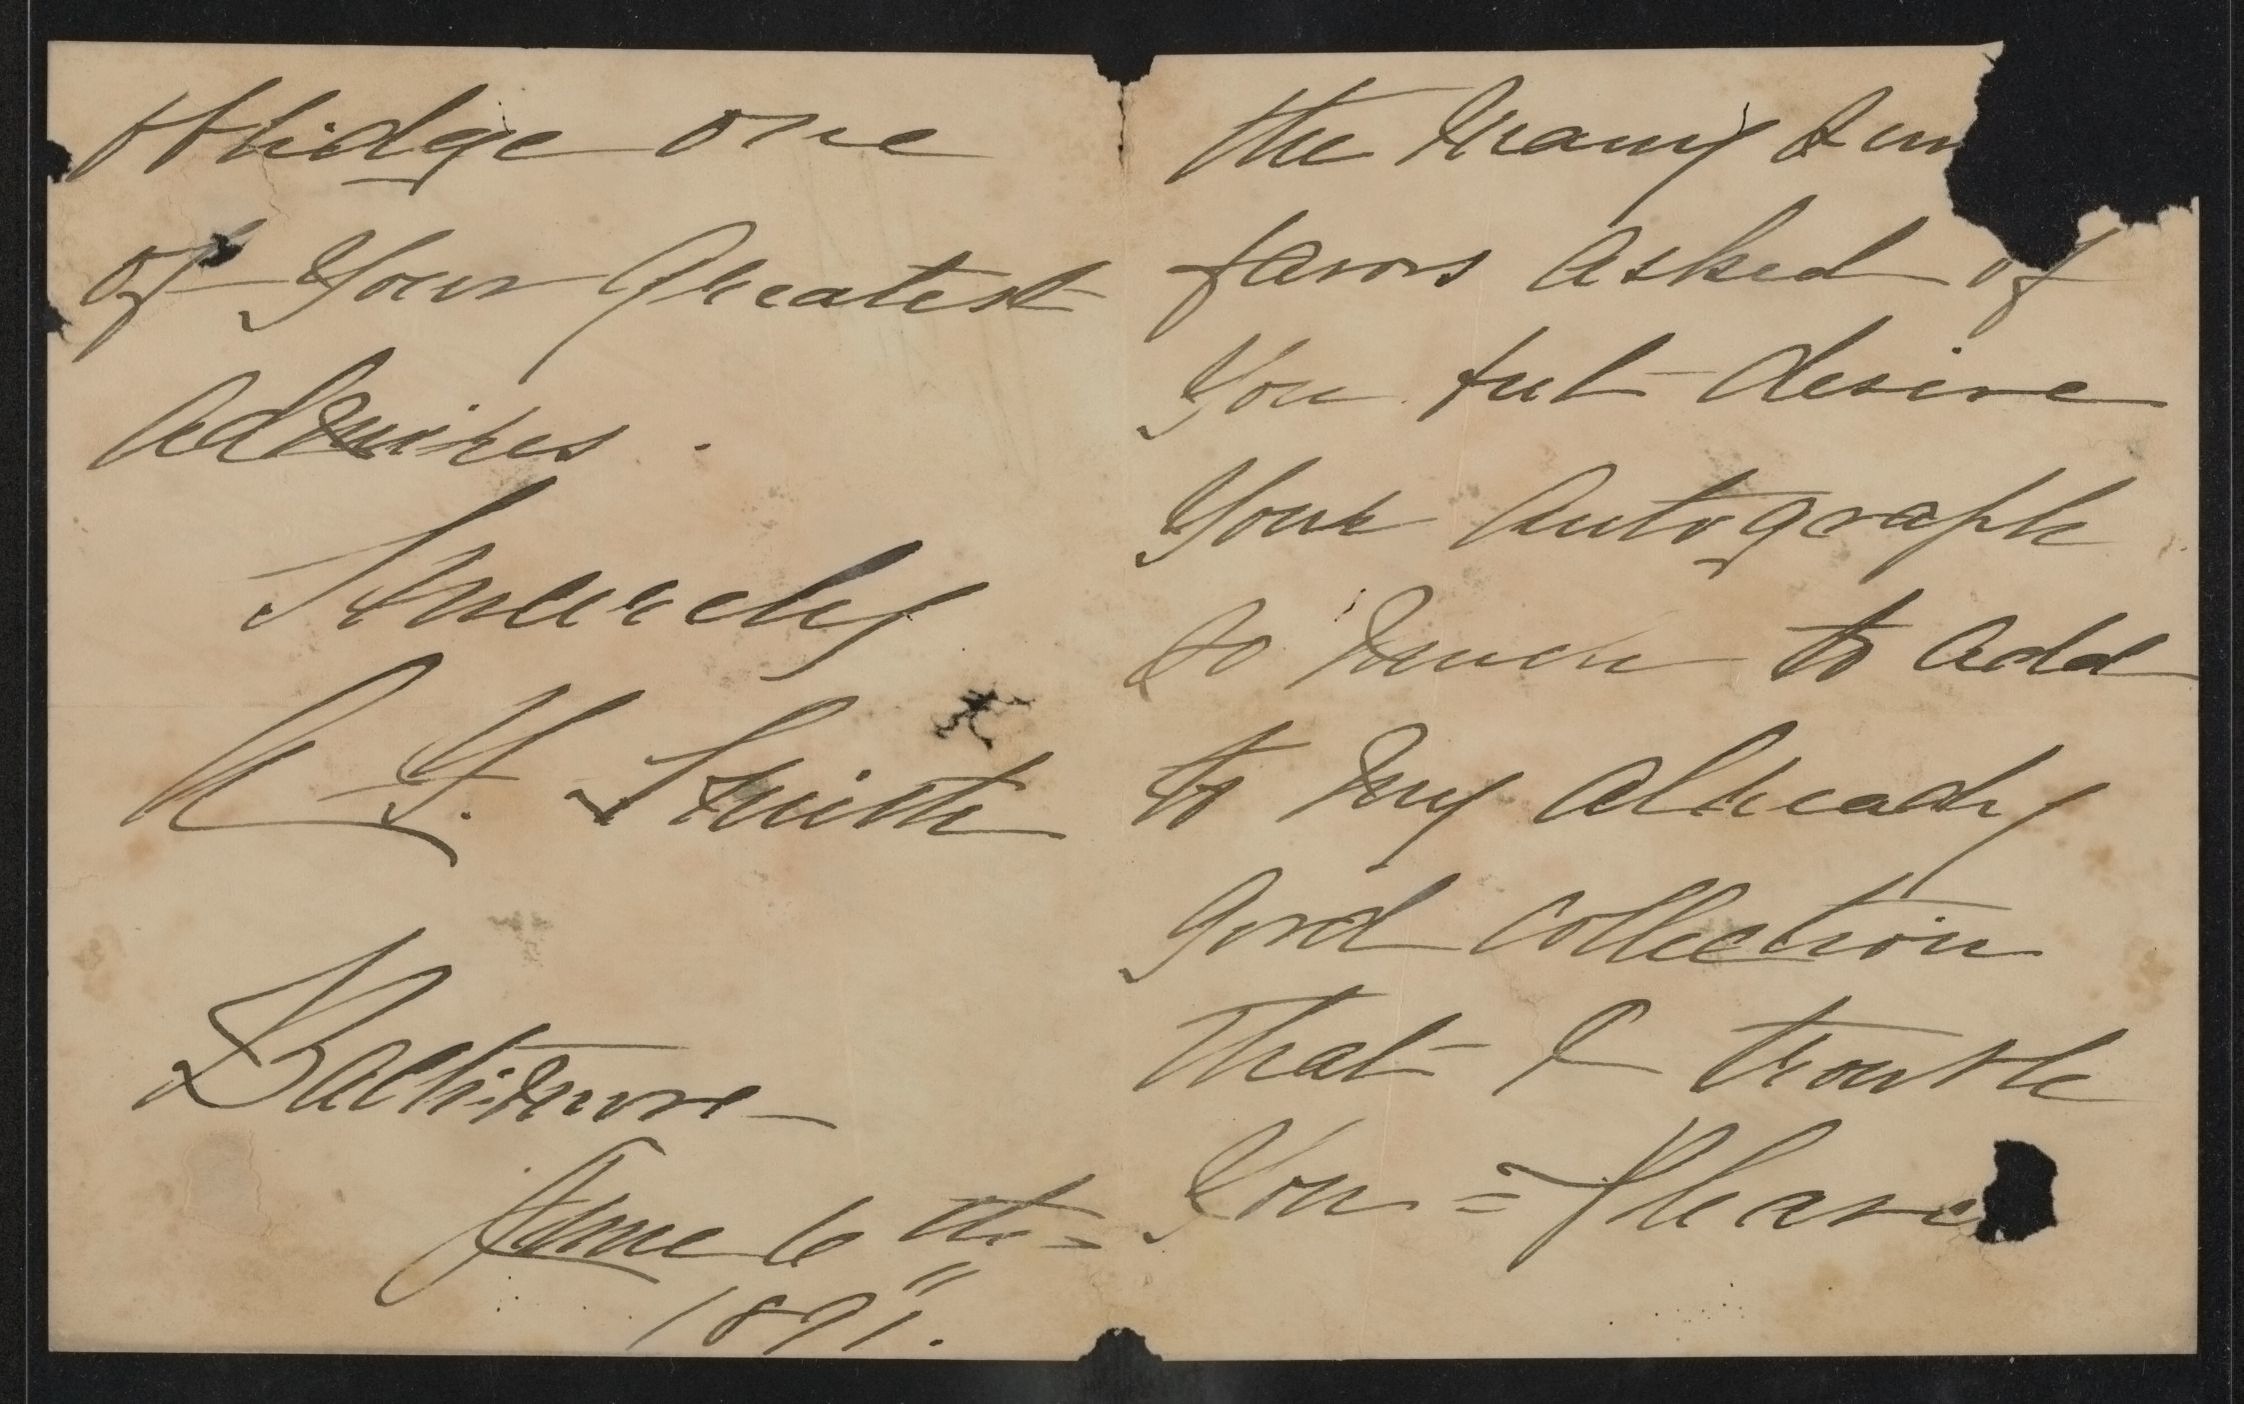 the Many
favors asked of
You but desire
Your Autograph
so Much to add
to My Already
Good Collection
that I trouble
You = Please
oblidge one
of Your Greatest
Admires.
Sincerely
Smith
Baltimore
June 6th =
1891.